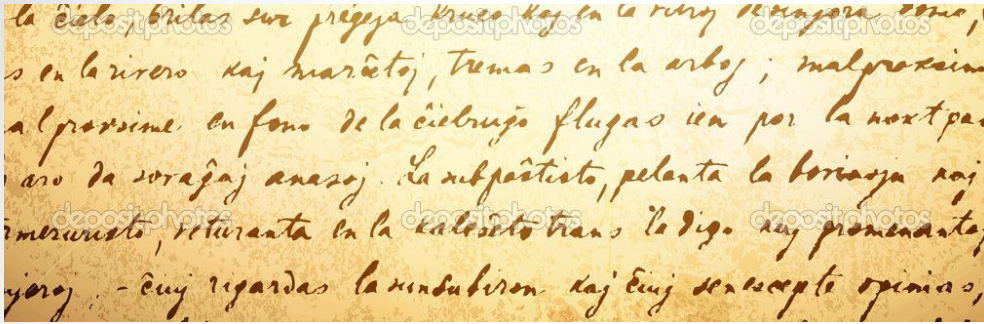 la ĉielo, brilas sur preĝeja kruco kaj en la vitroj de sinjora domo,
s en la rivero kaj marĉetoj, tremas en la arboj; malproksim
alproksime en fono de la ĉielruĝo flugas ien por la noktpa
aro da sovaĝaj anasoj. La subpaŝtisto, pelanta la bovinojn kaj
rmezuristo, veturanta en la kaleŝeto trans la digo kaj promenantaj
njoroj, - ĉiuj rigardas la sunsubiron kaj ĉiuj senescepte opinias,